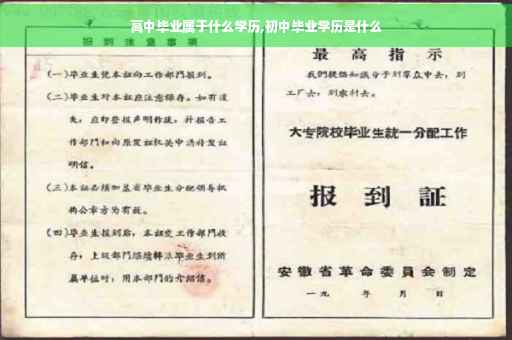 高中毕业属于什么学历,初中毕业学历是什么
报到注意事项
(一)毕业生凭本证向工作部门报到。
(二)毕业生对本证应注意保存。如有遗
失,应即登报声明作废,并报告工
作部门和向原发证机关申请补发证
明信。
(三)本证必须加盖省毕业生分配领导机
构公章方为有效。
(四)毕业生报到后,本证交工作部门收
存;上级部门
毕业生到所
属单位时,用本部门的介绍信。
最高指示
我们提倡知识分子到群众中去,到
工厂去,到农村去。
大专院校毕业生統一分配工作
报到証
安徽省革命委員会制定
一九 年 月 日